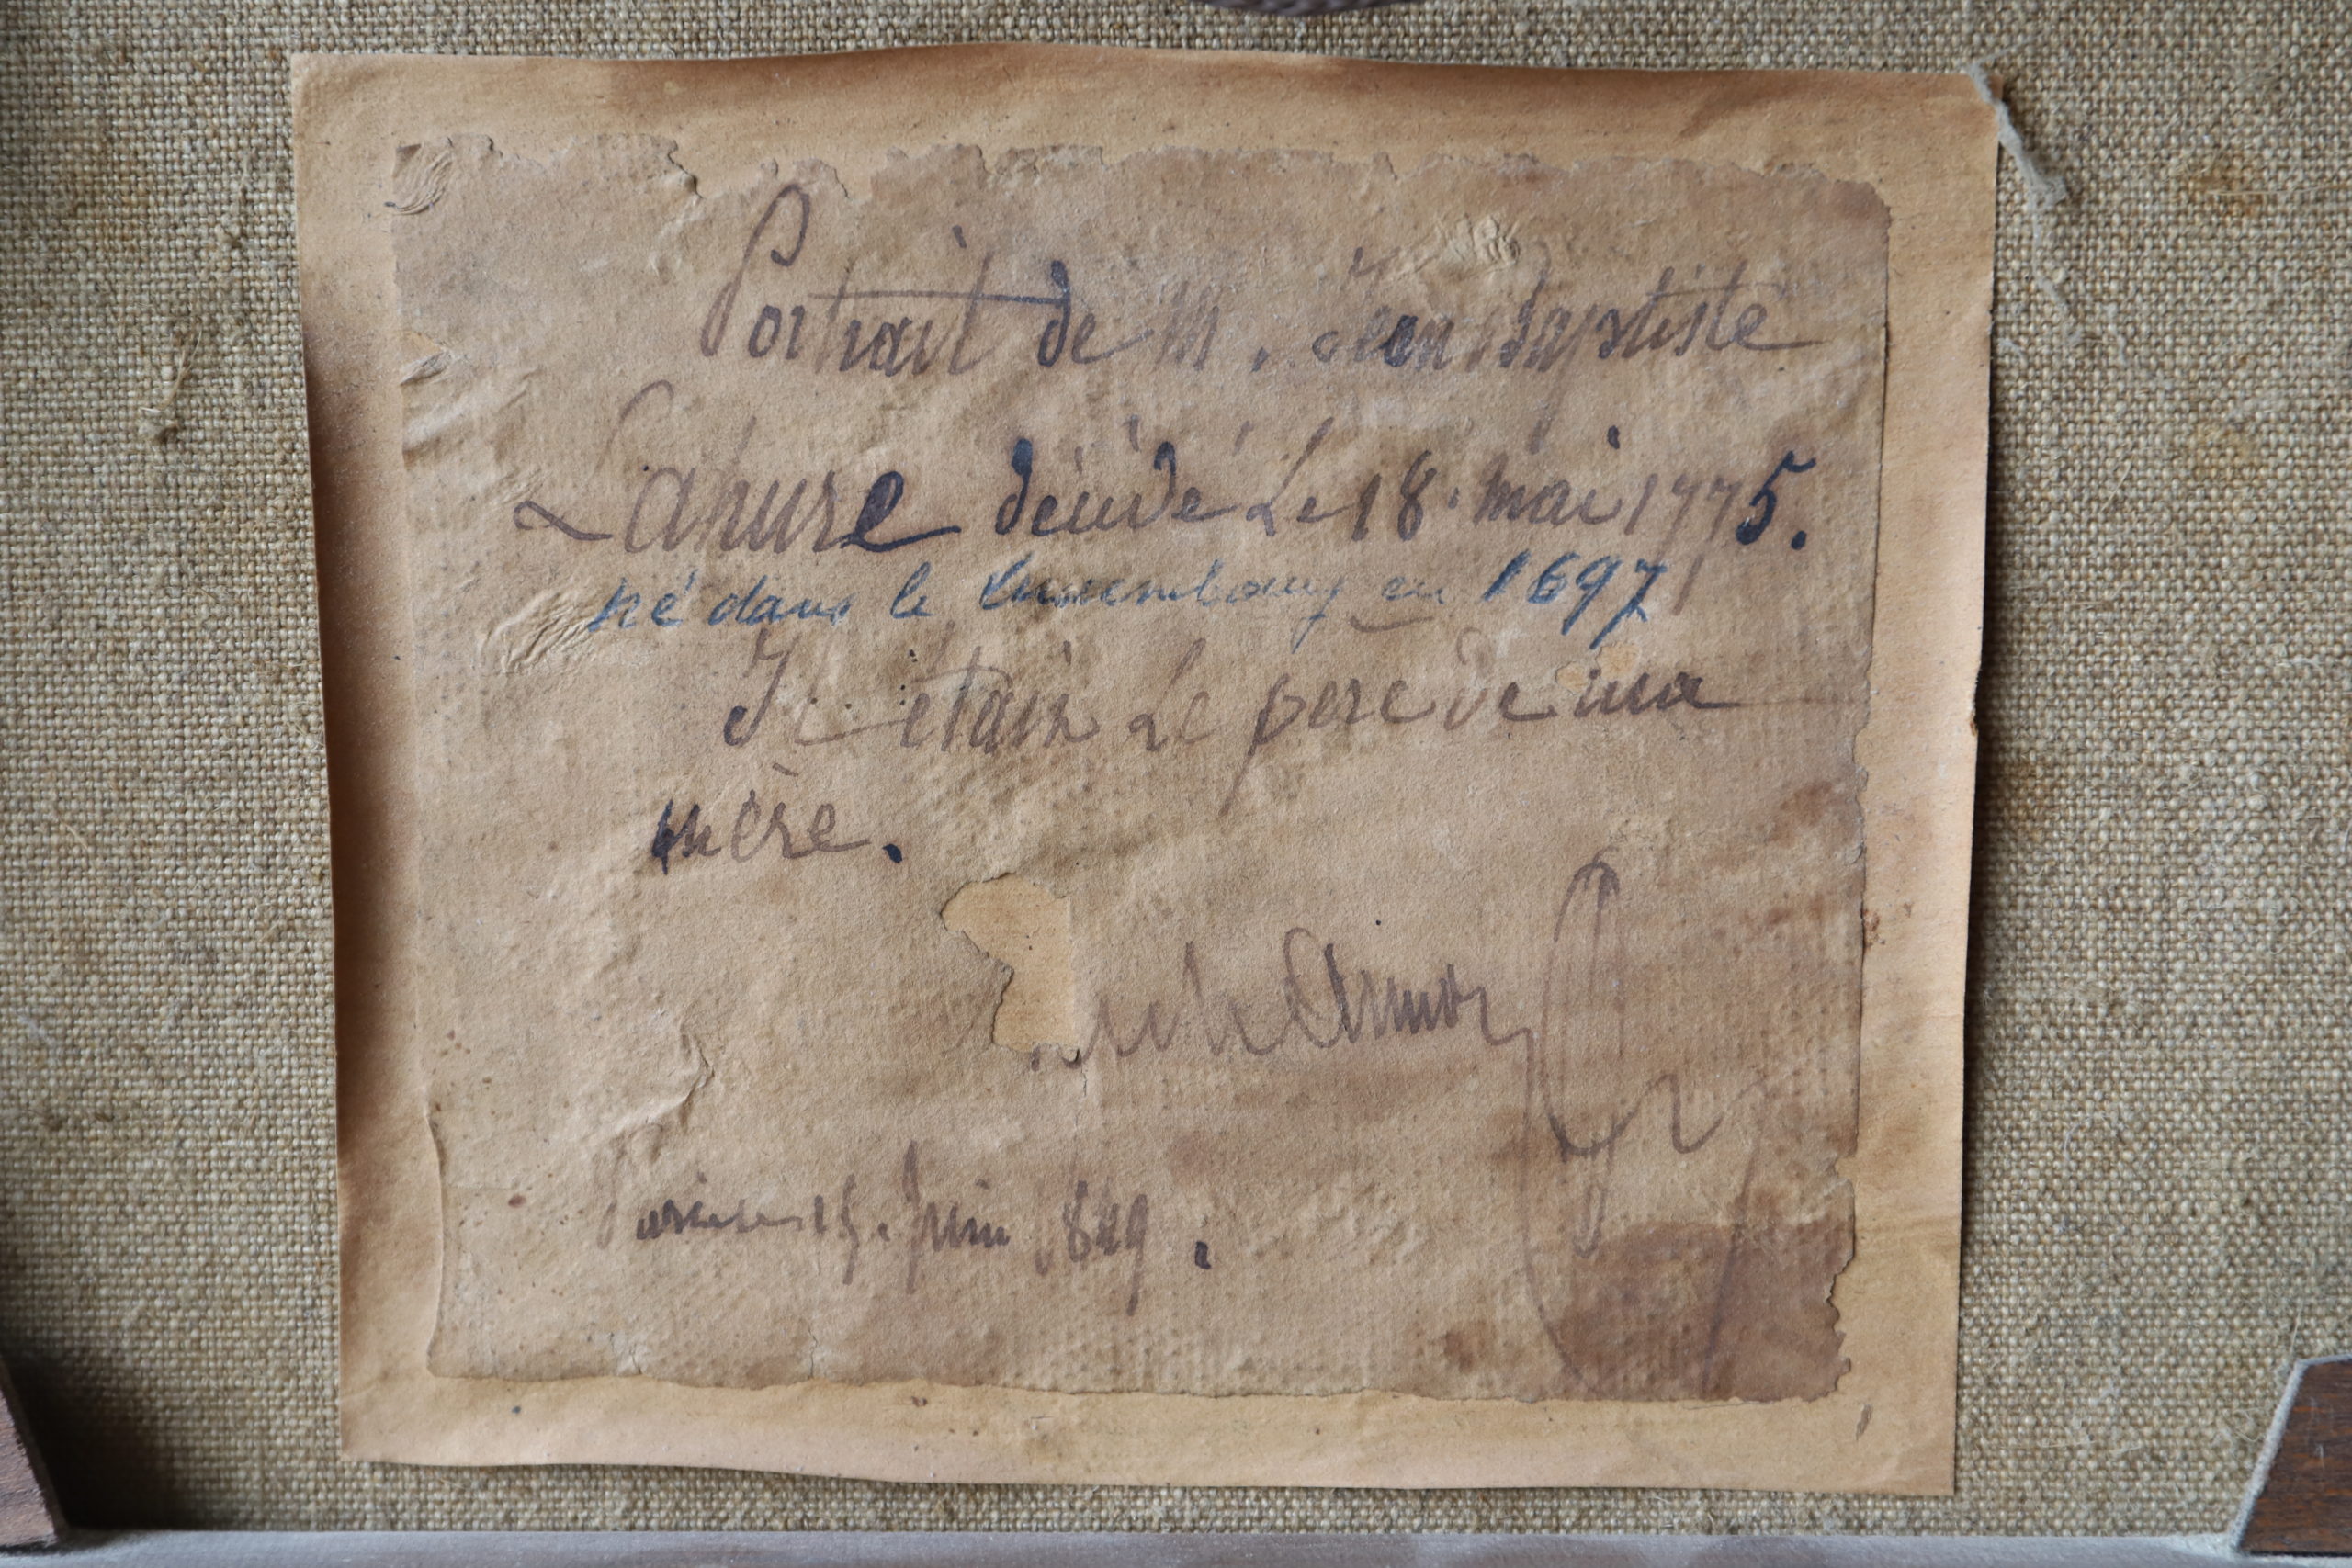 Portrait de M. Jean Baptiste
Lahure décédé Le 18. mai 1775.
né dans le Luxembourg en 1697
Il était Le père de ma
mère.
15. Juin 1849.